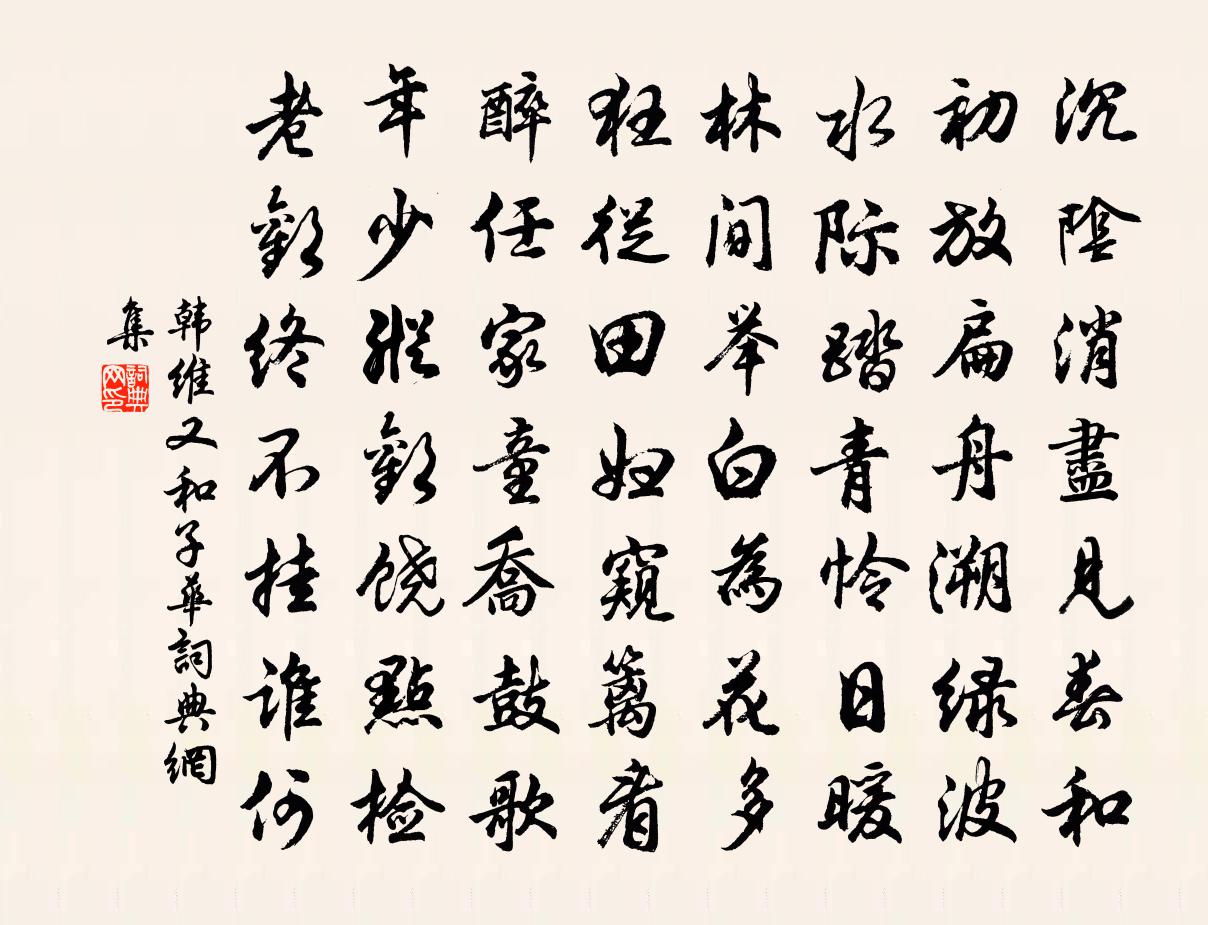 沉陰消盡見春和
初放扁舟溯绿波
水际踏青怜日暖
林间举白為花多
狂從田妇窺篱看
醉任家童喬鼓歌
年少縱歡饶點检
老歡终不挂谁何
韩维又和子華詞典網
集
詞典网印